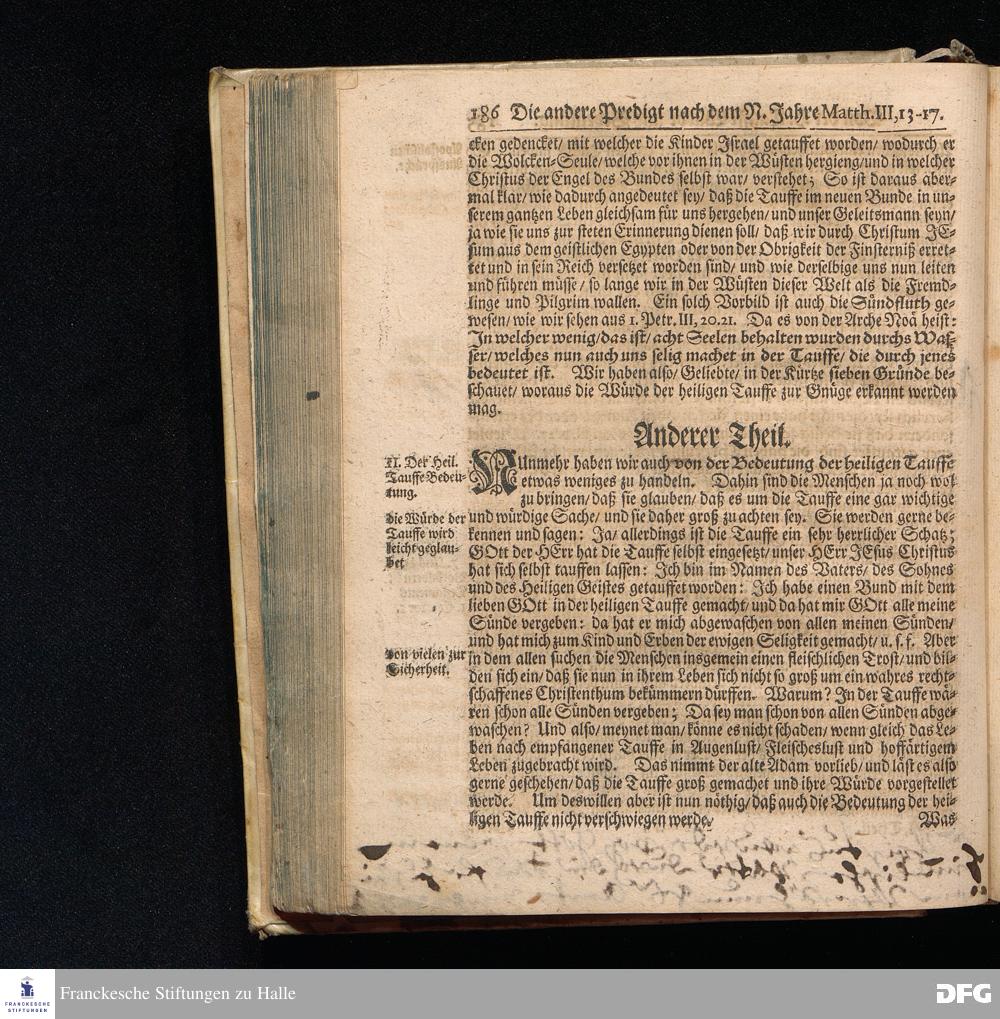 186 Die andere Predigt nach dem N. Jahre Matth. III, 13-17.
cken gedencket/ mit welcher die Kinder Israel getauffet worden/ wodurch er
die Wolcken-Seule/ welche vor ihnen in der Wüsten hergieng/ und in welcher
Christus der Engel des Bundes selbst war/ verstehet; So ist daraus aber-
mal klar/ wie dadurch angedeutet sey/ daß die Tauffe im neuen Bunde in un-
serem gantzen Leben gleichsam für uns hergehen/ und unser Geleitsmann seyn/
ja wie sie uns zur steten Erinnerung dienen soll/ daß wir durch Christum JE-
sum aus dem geistlichen Egypten oder von der Obrigkeit der Finsterniß erret-
tet und in sein Reich versetzet worden sind/ und wie derselbige uns nun leiten
und führen müsse/ so lange wir in der Wüsten dieser Welt als die Fremd-
linge und Pilgrim wallen. Ein solch Vorbild ist auch die Sündfluth ge-
wesen/ wie wir sehen aus 1. Petr. III, 20.21. Da es von der Arche Noä heist:
In welcher wenig/ das ist/ acht Seelen behalten wurden durchs Was-
ser/ welches nun auch uns selig machet in der Tauffe/ die durch jenes
bedeutet ist. Wir haben also/ Geliebte/ in der Kürtze sieben Gründe be-
schauet/ woraus die Würde der heiligen Tauffe zur Gnüge erkannt werden
mag.
Anderer Theil.
II. Der Heil.
Tauffe Bedeu-
tung.
NUnmehr haben wir auch von der Bedeutung der heiligen Tauffe
etwas weniges zu handeln. Dahin sind die Menschen ja noch wol
zu bringen/ daß sie glauben/ daß es um die Tauffe eine gar wichtige
die Würde der
Tauffe wird
leicht geglau-
bet
und würdige Sache/ und sie daher groß zu achten sey. Sie werden gerne be-
kennen und sagen: Ja/ allerdings ist die Tauffe ein sehr herrlicher Schatz;
GOtt der HErr hat die Tauffe selbst eingesetzt/ unser HErr JEsus Christus
hat sich selbst tauffen lassen: Ich bin im Namen des Vaters/ des Sohnes
und des Heiligen Geistes getauffet worden: Ich habe einen Bund mit dem
lieben GOtt in der heiligen Tauffe gemacht/ und da hat mir GOtt alle meine
Sünde vergeben: da hat er mich abgewaschen von allen meinen Sünden/
und hat mich zum Kind und Erben der ewigen Seligkeit gemacht/ u. s. f. Aber
von vielen zur
Sicherheit.
in dem allen suchen die Menschen insgemein einen fleischlichen Trost/ und bil-
den sich ein/ daß sie nun in ihrem Leben sich nicht so groß um ein wahres recht-
schaffenes Christenthum bekümmern dürffen. Warum? In der Tauffe wä-
ren schon alle Sünden vergeben; Da sey man schon von allen Sünden abge-
waschen? Und also/ meynet man/ könne es nicht schaden/ wenn gleich das Le-
ben nach empfangener Tauffe in Augenlust/ Fleischeslust und hoffärtigem
Leben zugebracht wird. Das nimmt der alte Adam vorlieb/ und läst es also
gerne geschehen/ daß die Tauffe groß gemachet und ihre Würde vorgestellet
werde. Um deswillen aber ist nun nöthig/ daß auch die Bedeutung der hei-
ligen Tauffe nicht verschwiegen werde.
Was
FRANCKESCHE
STIFTUNGEN
Franckesche Stiftungen zu Halle
DFG